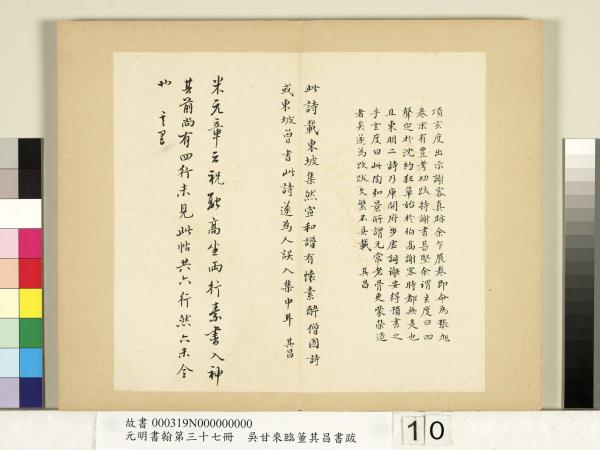 項玄度出示謝客真跡余乍展卷即命為張旭
卷末有豐考功跋持謝書甚堅余謂玄度曰四
聲定於沈約狂草始於伯高謝客時都無是也
且東明二詩乃庾開府步虛詞謝安得預書之
乎玄度曰此陶和景所謂元常老骨更蒙榮造
者矣遂為改跋文繁不具載 其昌
此詩載東坡集然宣和譜有懷素醉僧圖詩
或東坡曾書此詩遂為人誤入集中耳 其昌
米元章云祝融高坐兩行素書入神
其前尚有四行未見此帖共六行然亦未全
也
故書 000319N000000000
元明書翰第三十七冊 吳甘來臨董其昌書跋
10